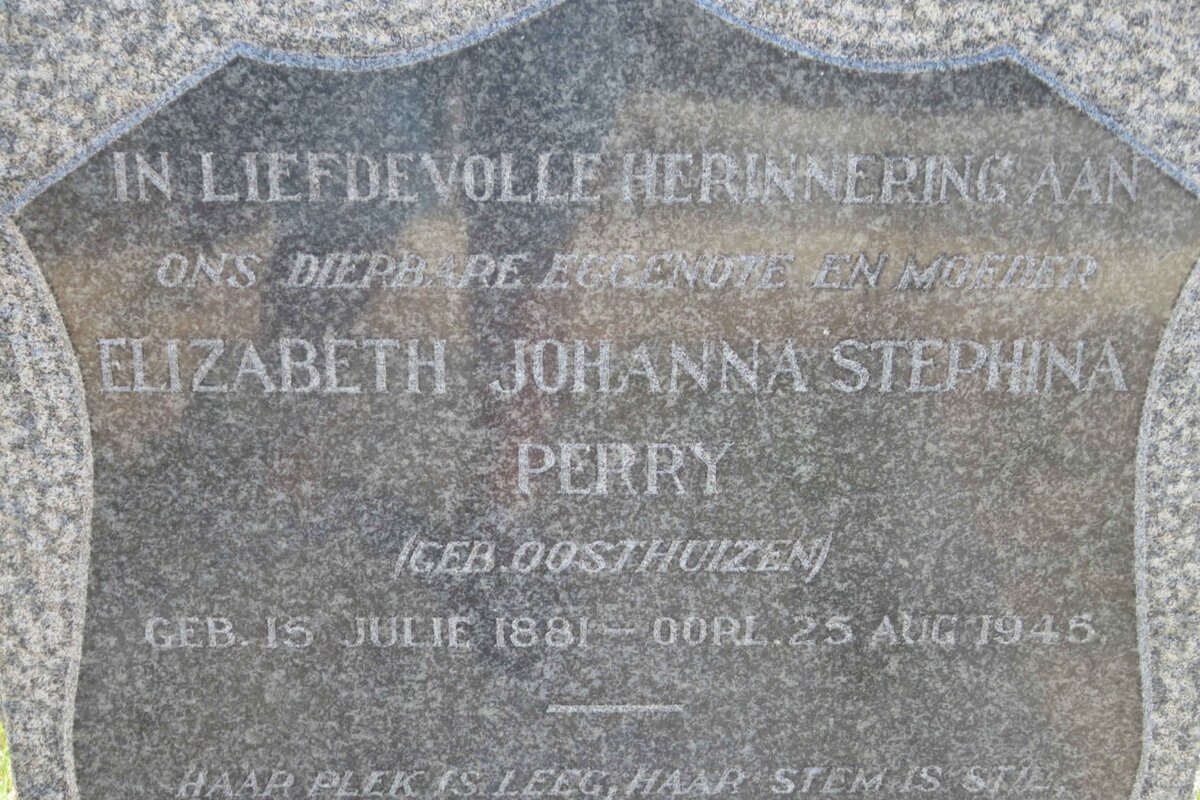 IN LIEFDEVOLLE HERINNERING AAN
ONS DIERBARE EGGENOTE EN MOEDER
ELIZABETH JOHANNA STEPHINA
PERRY
(GEB. OOSTHUIZEN)
GEB. 15 JULIE 1881 — OORL. 25 AUG 1945.
HAAR PLEK IS LEEG, HAAR STEM IS STIL,